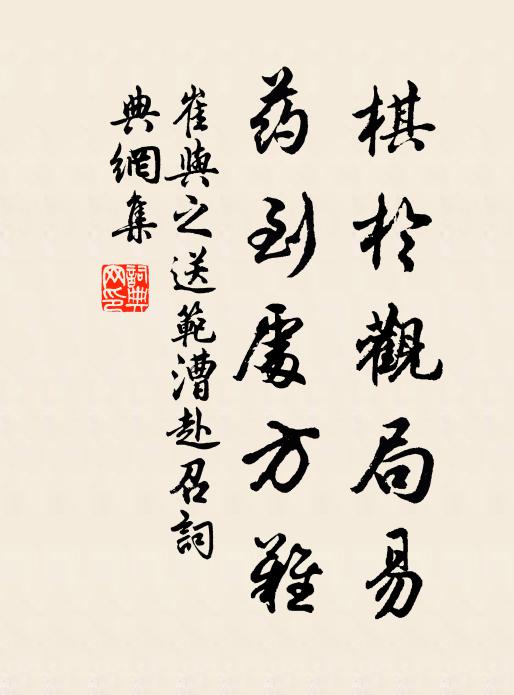 棋於觀局易
药到處方難
崔與之送範漕赴召詞
典網集
詞典網印